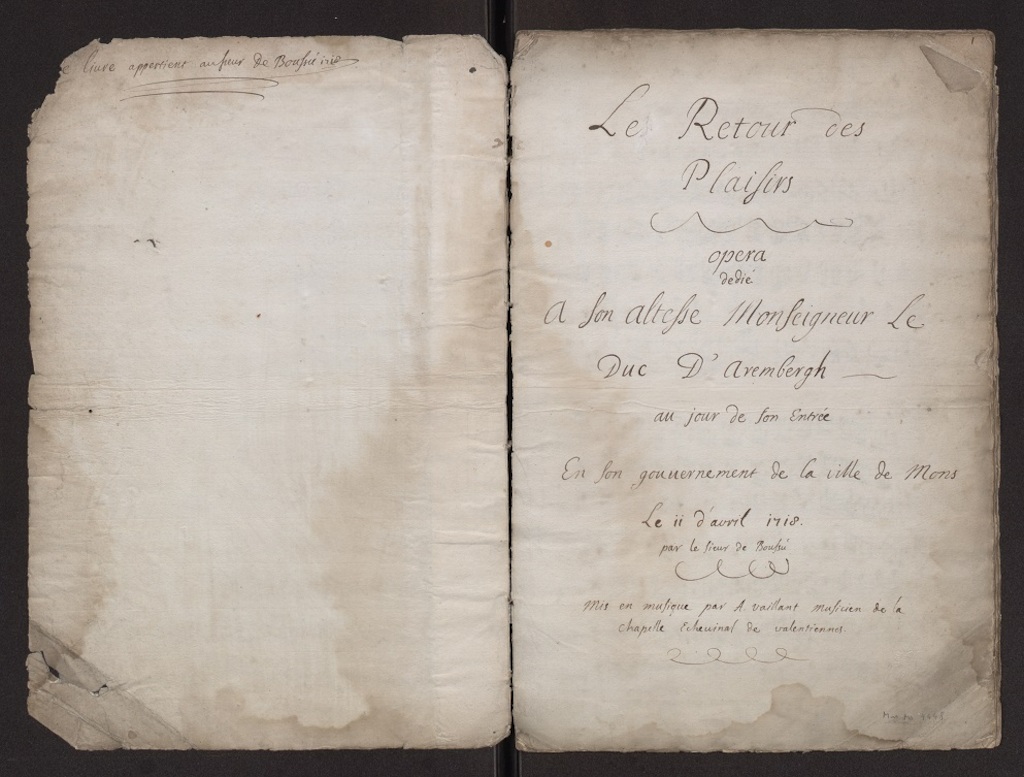 livre appertient au sieur de Boussu 1718
1
Le Retour des
Plaisirs
opera
dedié
A son altesse Monseigneur Le
Duc D'Arembergh
au jour de son Entrée
En son gouuernement de la ville de Mons
Le 11 d'avril 1718.
par le sieur de Boussu
Mis en musique par A. vaillant musicien de la
chapelle Echevinal de valentiennes.